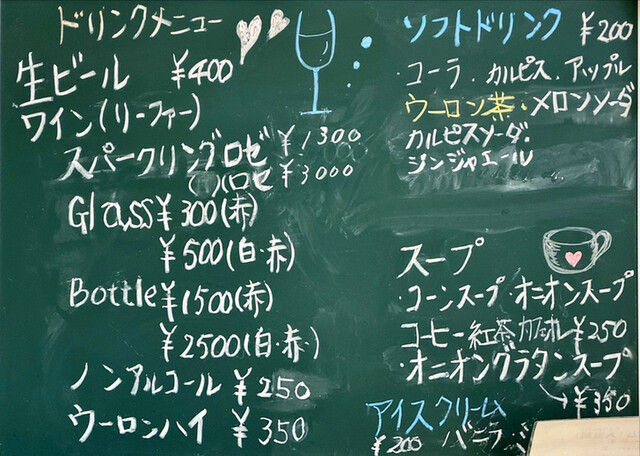 ドリンクメニュー
生ビール ¥400
ワイン(リーファー)
スパークリングロゼ ¥1300
ロゼ ¥3000
Glass ¥300(赤)
¥500(白・赤)
Bottle ¥1500(赤)
¥2500(白・赤)
ノンアルコール ¥250
ウーロンハイ ¥350
ソフトドリンク ¥200
・コーラ・カルピス・アップル
ウーロン茶・メロンソーダ
カルピスソーダ・
ジンジャエール
スープ
・コーンスープ・オニオンスープ
コーヒー紅茶カフェオレ¥250
・オニオングラタンスープ
¥350
アイスクリーム
¥200 バニラ